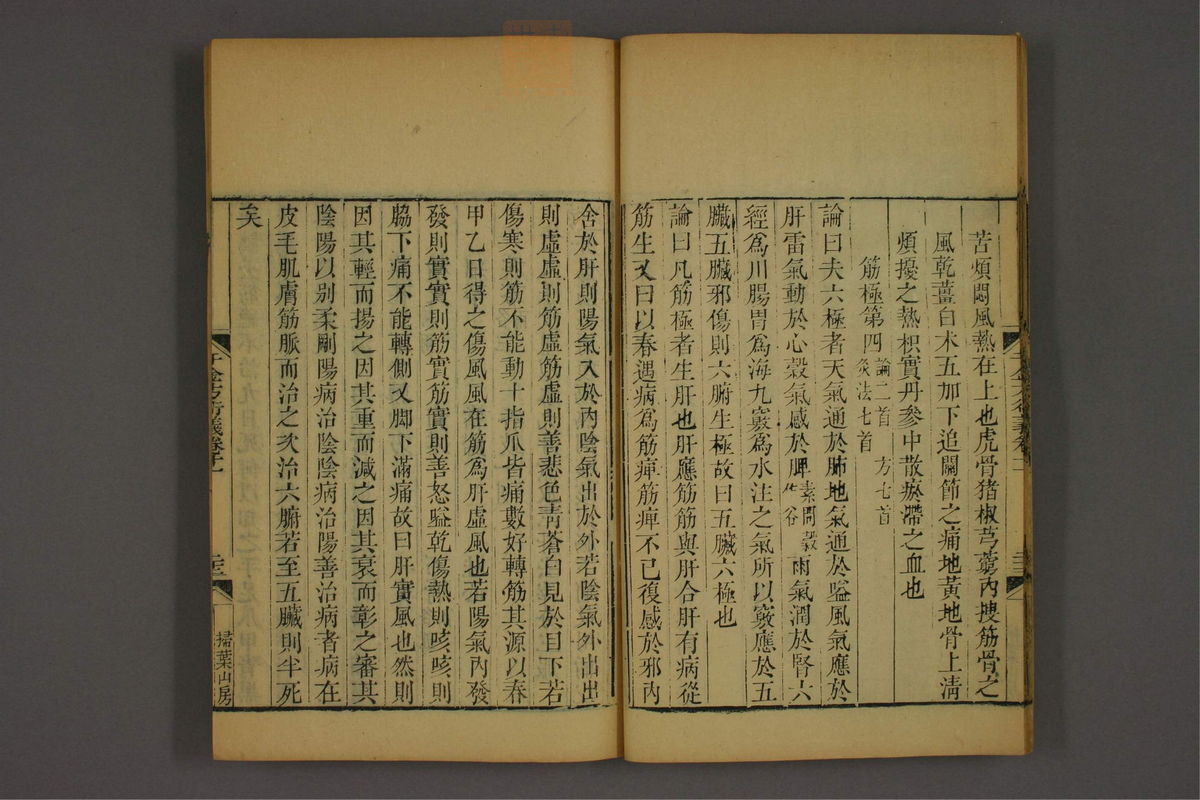 苦煩悶風熱在上也虎骨猪椒芎藭內搜筋骨之
風乾薑白朮五加下追關節之痛地黃地骨上清
煩擾之熱枳實丹參中散瘀滯之血也
筋極第四 論二首 方七首 灸法七首
論曰夫六極者天氣通於肺地氣通於嗌風氣應於
肝雷氣動於心穀氣感於脾 素問穀作谷 雨氣潤於腎六
經爲川腸胃爲海九竅爲水注之氣所以竅應於五
臟五臟邪傷則六腑生極故曰五臟六極也
論曰凡筋極者主肝也肝應筋筋與肝合肝有病從
筋生又曰以春遇病爲筋痺筋痺不已復感於邪內
舍於肝則陽氣入於內陰氣出於外若陰氣外出出
則虛虛則筋虛筋虛則善悲色青蒼白見於目下若
傷寒則筋不能動十指爪皆痛數好轉筋其源以春
甲乙日得之傷風風在筋爲肝虛風也若陽氣內發
發則實實則筋實筋實則善怒嗌乾傷熱則咳咳則
脇下痛不能轉側又脚下滿痛故曰肝實風也然則
因其輕而揚之因其重而減之因其衰而彰之審其
陰陽以别柔剛陽病治陰陰病治陽善治病者病在
皮毛肌膚筋脈而治之次治六腑若至五臟則半死
矣
千金方衍義卷十一
掃葉山房